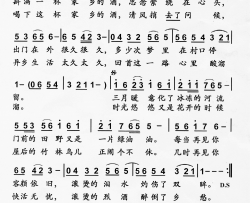 斟满一杯家乡的酒,思念萦绕在心头,
喝下这杯家乡的酒,清风捎去了问候,
5 3 65 6 5 | 6 5 42 3 — | 0 32 1 2 3 5 0 53 |
出门在外很久很久,多少次梦里在村口停
异乡生活太久太久,回首这一路心里酸溜
1 — (0 65 4 | 3 2 1 1 —) | 1 6 2 2 1 2 1 6 5
留。三月暖意化了冰冻的河流
溜。时光悠悠又是花开的时候
5 5 3 5 5 6 1 6 1 | 1 2 1 7 6 5 — | 5 5 6 5 5
门前的田野又是一片绿油油。每当再见你
屋后的竹林鸟儿三阙个不休。儿时再见你
6 5 42 3 — | 0 3 2 1 2 3 5 | 0 6 54 3 2 1
容颜依旧,滚烫的泪水灼伤了双眸。D.S
快活无忧,滚烫的烈酒醉倒了乡愁。